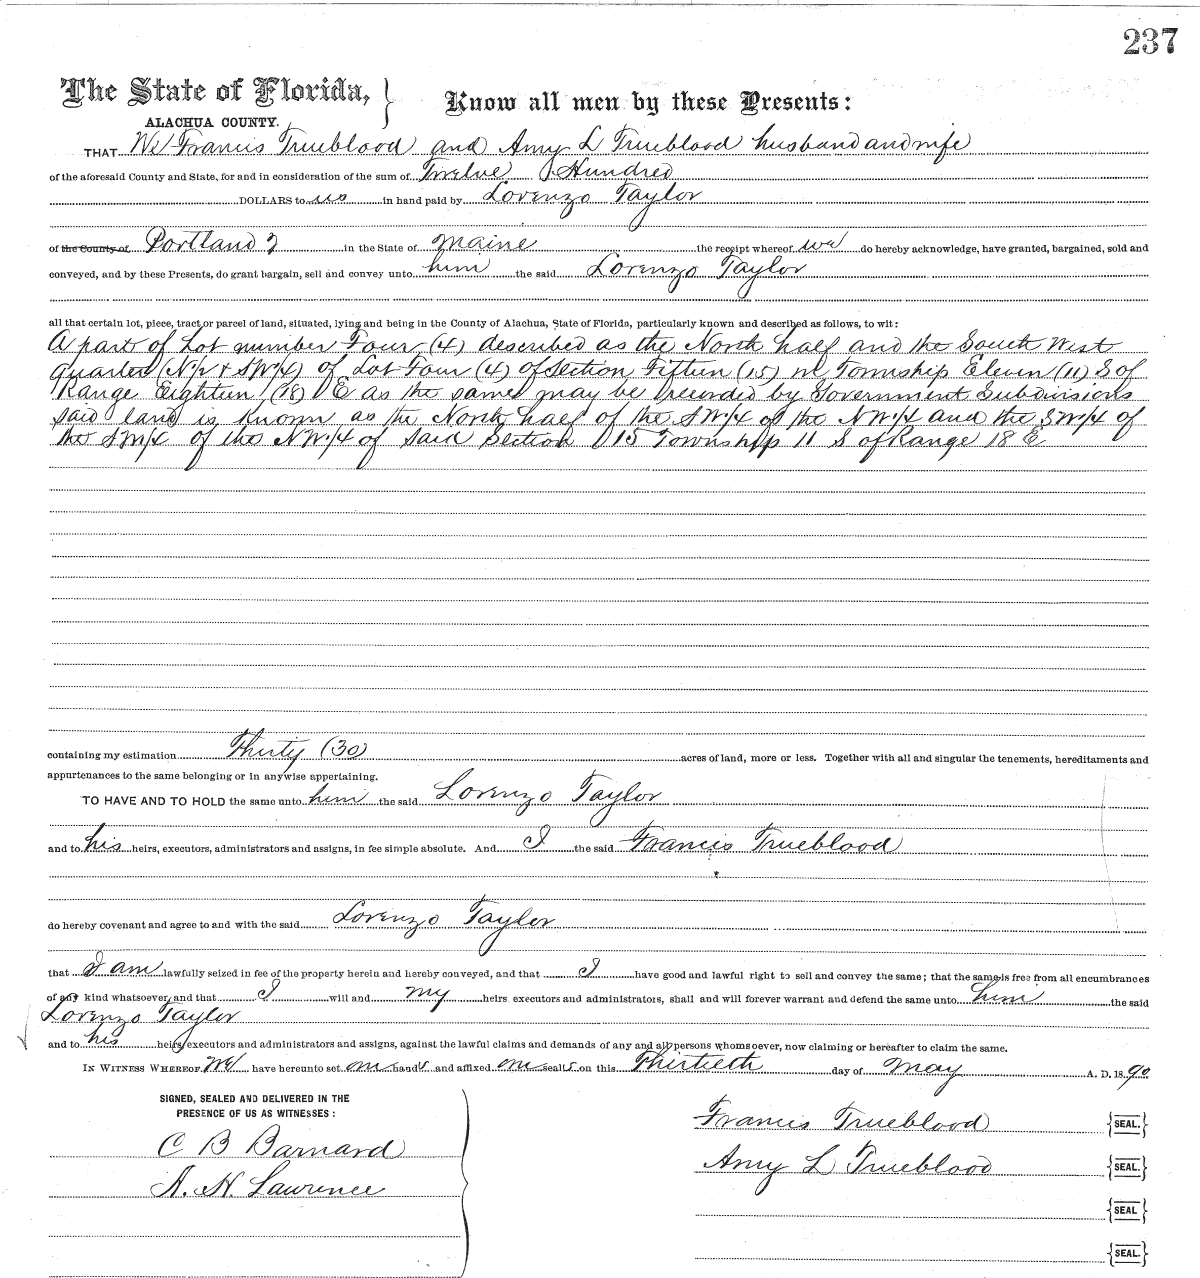 237
The State of Florida,
ALACHUA COUNTY.
Know all men by these Presents:
THAT We Francis Trueblood and Amy L Trueblood husband and wife
of the aforesaid County and State, for and in consideration of the sum of Twelve Hundred
DOLLARS to us in hand paid by Lorenzo Taylor
of the County of Portland in the State of Maine the receipt whereof we do hereby acknowledge, have granted, bargained, sold and
conveyed, and by these Presents, do grant bargain, sell and convey unto him the said Lorenzo Taylor
all that certain lot, piece, tract or parcel of land, situated, lying and being in the County of Alachua, State of Florida, particularly known and described as follows, to wit:
A part of Lot number Four (4) described as the North half and the South West
quarter (N½ & SW/4) of Lot Four (4) of Section Fifteen (15) in Township Eleven (11) S of
Range Eighteen (18) E as the same may be by Government Subdivisions
said land is known as the North half of the SW/4 of the NW/4 and the SW/4 of
the SW/4 of the NW/4 of Said Section 15 Township 11 S of Range 18 E
containing my estimation Thirty (30) acres of land, more or less. Together with all and singular the tenements, hereditaments and
appurtenances to the same belonging or in anywise appertaining.
TO HAVE AND TO HOLD the same unto him the said Lorenzo Taylor
and to his heirs, executors, administrators and assigns, in fee simple absolute. And I the said Francis Trueblood
do hereby covenant and agree to and with the said Lorenzo Taylor
that I am lawfully seized in fee of the property herein and hereby conveyed, and that I have good and lawful right to sell and convey the same; that the same is free from all encumbrances
of any kind whatsoever, and that I will and my heirs executors and administrators, shall and will forever warrant and defend the same unto him the said
Lorenzo Taylor
and to his heirs, executors and administrators and assigns, against the lawful claims and demands of any and all persons whomsoever, now claiming or hereafter to claim the same.
IN WITNESS WHEREOF We have hereunto set our hands and affixed our seals on this Thirtieth day of May A. D. 1890
SIGNED, SEALED AND DELIVERED IN THE
PRESENCE OF US AS WITNESSES:
C B Barnard
A. H. Lawrence
Francis Trueblood {SEAL.}
Amy L Trueblood {SEAL.}
{SEAL}
{SEAL.}